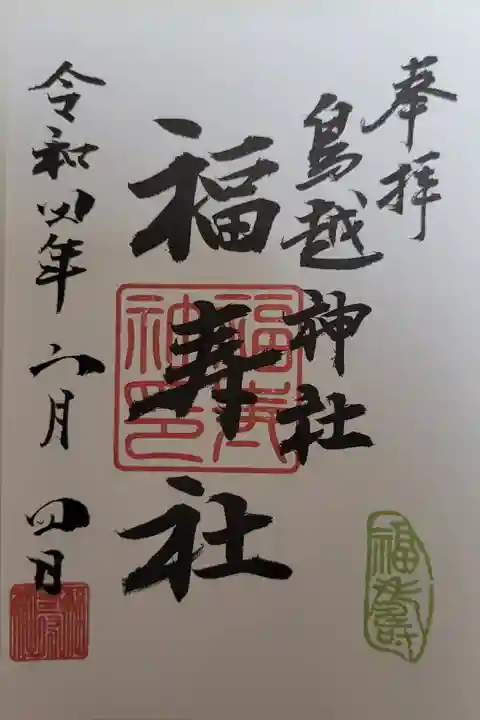 奉拝
鳥越神社
福寿社
令和四年六月四日
福寿